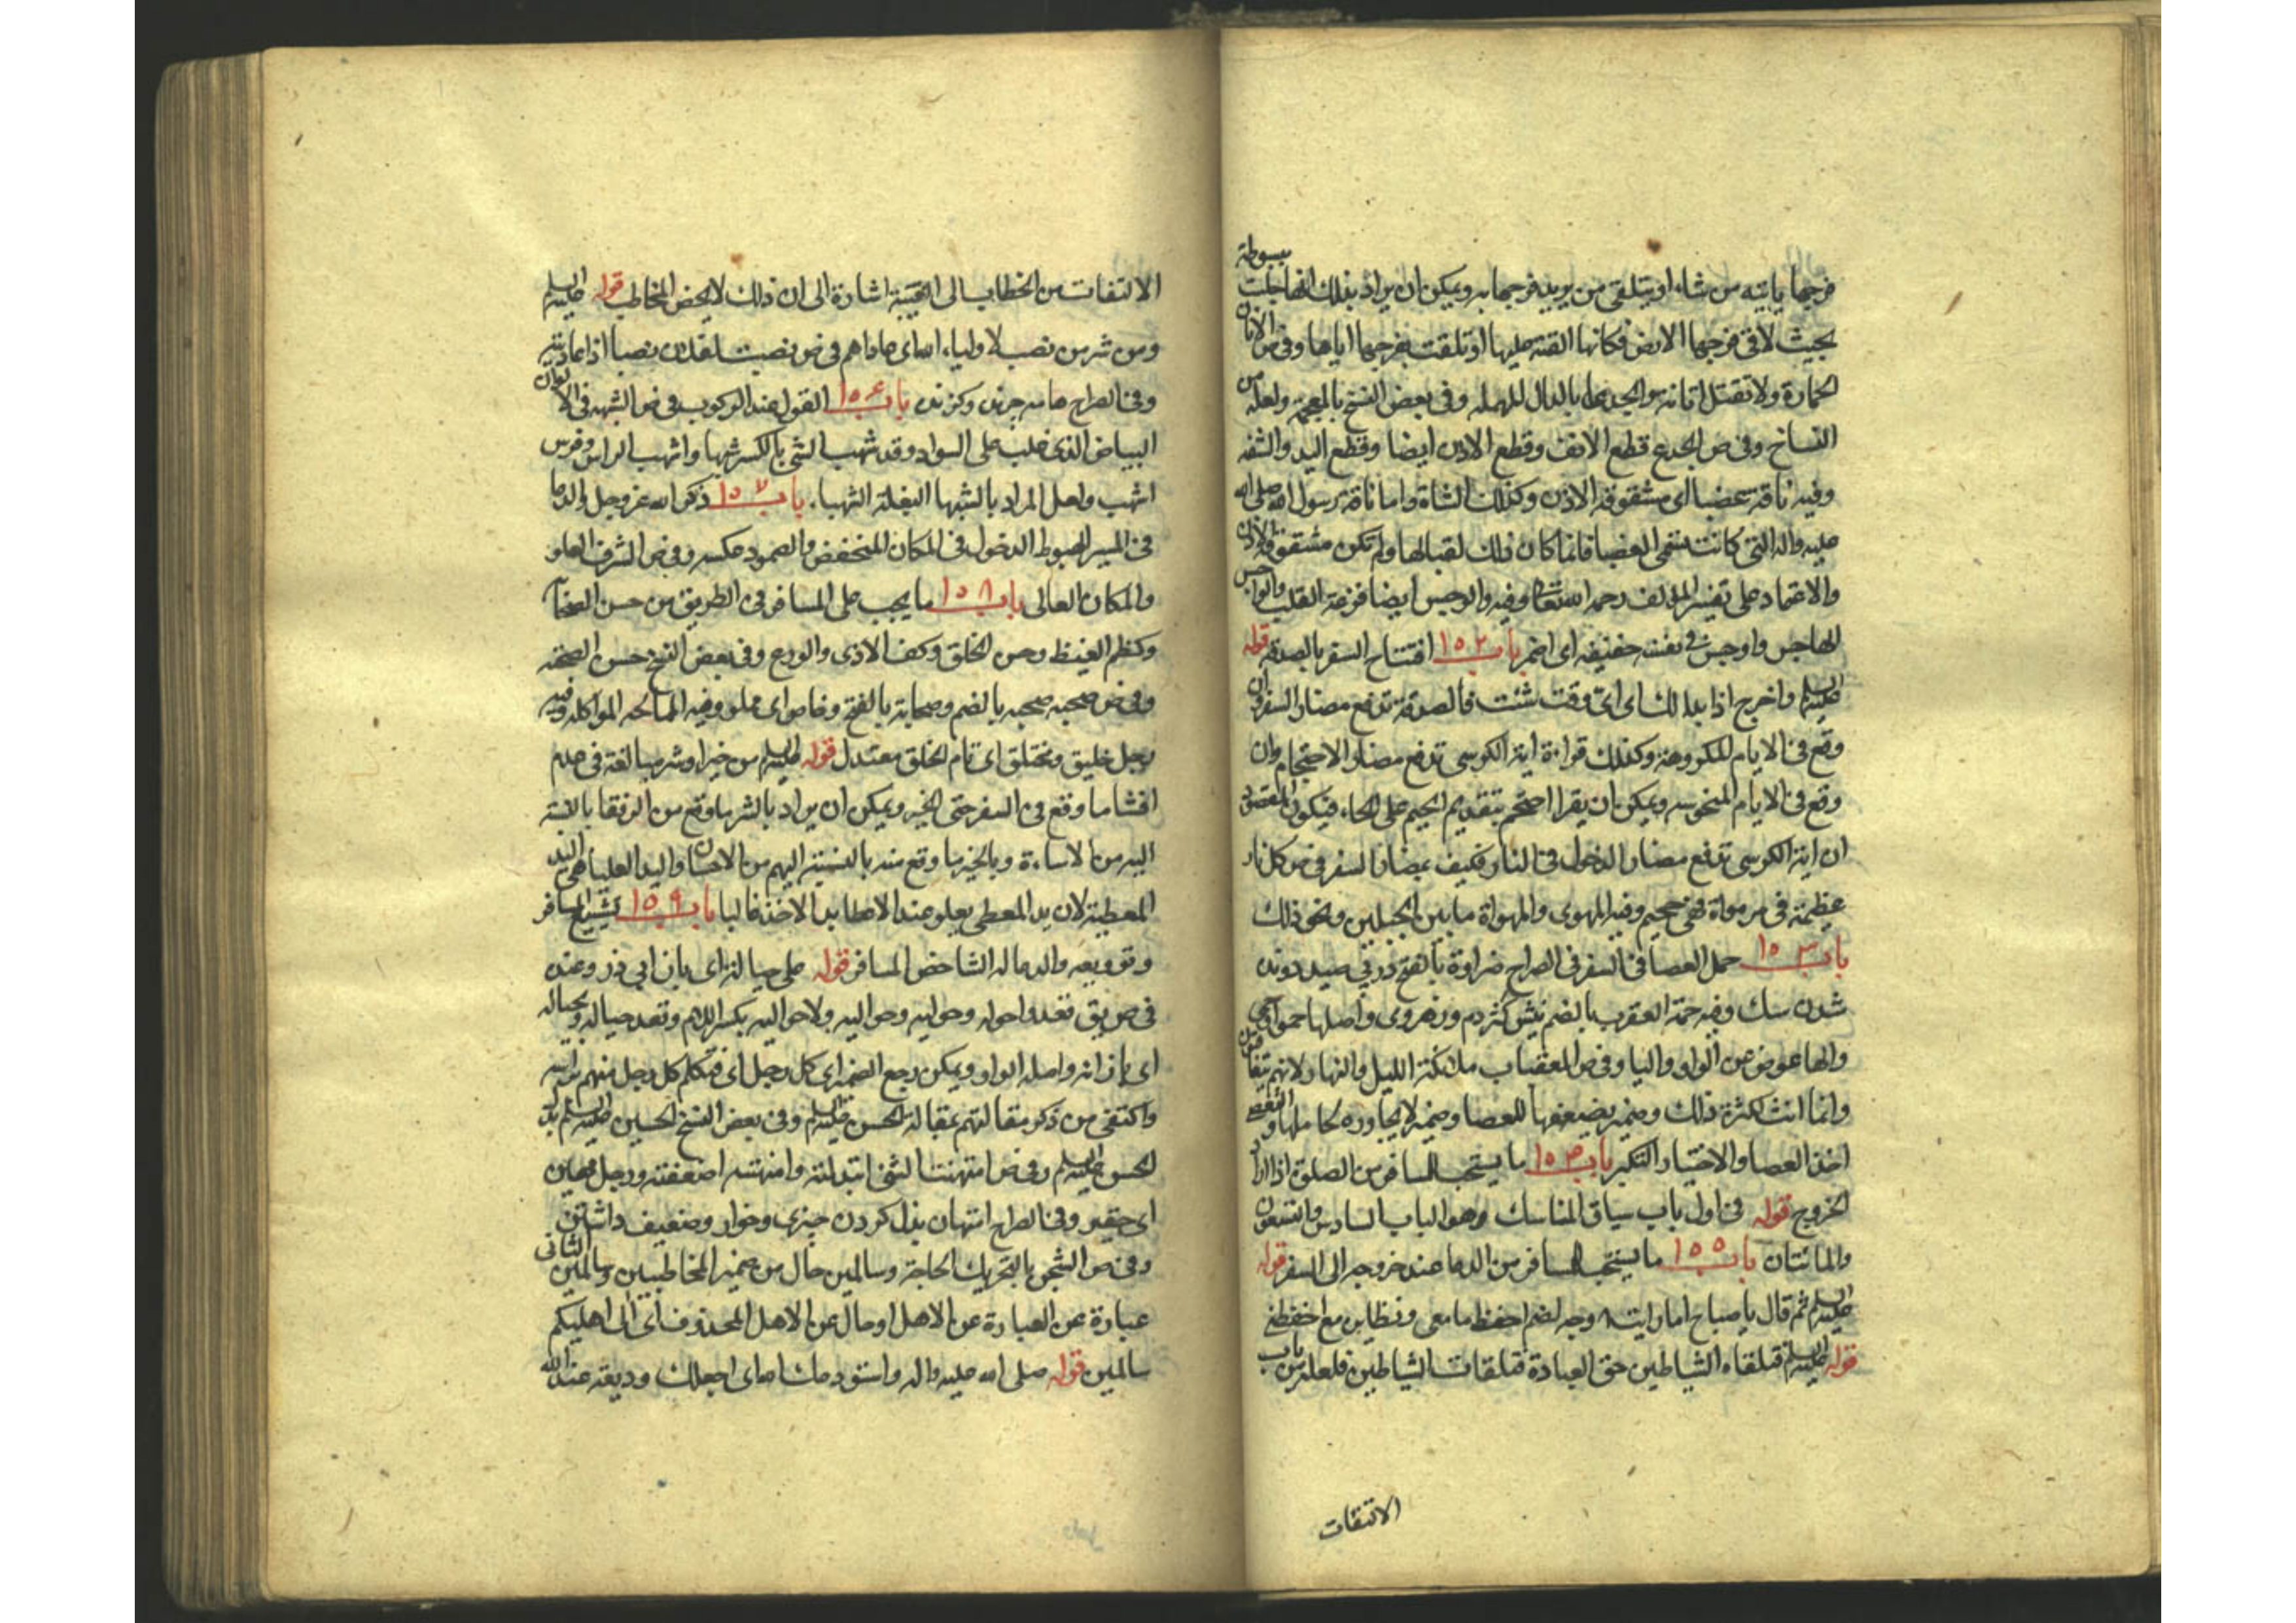 فرجها ياتيه من شاء او يتلقى من يريد فرجها به ويمكن ان يراد بذلك انها جلت مبسوطة
بحيث لاقى فرجها الارض فكانها القته عليها او تلقت بفرجها اياها وفي ص الاتان
الحمارة ولا تقتل اتانه والجدعا بالدال المهملة وفي بعض النسخ بالمعجمة ولعله من
النساخ وفي ص الجدع قطع الانف وقطع الاذن ايضا وقطع اليد والشفه
وفيه ناقة عضبا اى مشقوقة الاذن وكذلك الشاة واما ناقة رسول الله صلى الله
عليه واله التى كانت تسمى العضبا فانما كان ذلك لقبالها ولم تكن مشقوقة الاذن
والاعتماد على تفسير المؤلف رحمه الله تعالى وفيه والوجس ايضا فزعة القلب والواجس
الهاجس واوجس في نفسه خيفة اى اضمر باب ١٥٢ افتتاح السفر بالصدقة قوله
عليه السلم واخرج اذا بدا لك اى اى وقت شئت فالصدقة تدفع مضار السفر ان
وقع في الايام المكروهة وكذلك قراءة اية الكرسي تدفع مضار الاحتجام وان
وقع في الايام المنحوسه ويمكن ان يقرا احتجم بتقديم الجيم على الحاء فيكون المقصود
ان اية الكرسي تدفع مضار الدخول في النار فكيف بمضار السفر في ص كل نار
عظيمة في مهواة فهي جحيم وفيه المهوى والمهواة ما بين الجبلين ونحو ذلك
باب ١٥٣ حمل العصا في السفر في الصراح ضراوة بالفتح در پى صيد دويدن
شدن سك وفيه حمة العقرب بالضم نيش كژدم وزهر وى واصلها حمو او حمى
والها عوض عن الواو واليا وفي ص المعقبات ملائكة الليل والنهار لانهم يتعاقبون
وانما انث لكثرة ذلك وضمير يضعفها للعصا وضمير لا يجاوره لحاملها و
اخذ العصا والاختيار التكبر باب ١٥٤ ما يستحب للمسافر من الصلوة اذا اراد
الخروج قوله في اول باب سياق المناسك وهو الباب السادس والتسعون
والمائتان باب ١٥٥ ما يستحب للمسافر من الدعا عند خروجه الى السفر قوله
عليه السلم ثم قال يا صباح اما رايت وجه لضم احفظ ما معى ونظايره مع احفظني
قوله عليه السلم فتلقاه الشياطين حق العبارة فتلقات الشياطين فلعله من باب
الالتفات
الالتفات من الخطاب الى الغيبة اشارة الى ان ذلك لا يخص المخاطب قوله عليه السلم
ومن شر من نصب لاولياء الله اى عاداهم في ص نصبت لفلان نصبا اذا عاديته
وفي الصراح هامه جرنده وكزنده باب ١٥٦ القول عند الركوب في ص الشهبة في الالوان
البياض الذي غلب على السواد وقد شهب الشى بالكسر شهبا واشهب الراس وفرس
اشهب ولعل المراد بالشهبا البغلة الشهبا. باب ١٥٧ ذكر الله عز وجل والدعا
في المسير الهبوط الدخول في المكان المنخفض والصعود عكسه وفي ص الشرف العلو
والمكان العالى باب ١٥٨ ما يجب على المسافر في الطريق من حسن الصحابة
وكظم الغيظ وحسن الخلق وكف الاذى والورع وفي بعض النسخ حسن الصحبة
وفي ص صحبه صحبه بالضم وصحابة بالفتح وغاص اى مملو وفيه الممالحة المواكلة وفيه
رجل خليق ومختلق اى تام الخلق معتدل قوله عليه السلم من خير او شر مبالغة في عدم
افشا ما وقع في السفر حتى الخير ويمكن ان يراد بالشر ما وقع من الرفقا بالنسبة
اليه من الاساءة وبالخير ما وقع منه بالنسبة اليهم من الاحسان واليد العليا هى اليد
المعطية لان يد المعطى يعلو عند الاعطا يد الاخذ غالبا باب ١٥٩ تشييع المسافر
وتوديعه والدعا له الشاخص المسافر قوله على حياله اى بان ابى ذر وعنده
في ص يق قعدوا حوله وحوليه وحواليه ولا حواليه بكسر اللام وقعد حياله وبحياله
اى بازائه واصله الواو ويمكن رجع الضمير الى كل رجل اى فتكلم كل رجل منهم براسه
واكتفى من ذكر مقالتهم بمقالة الحسن عليه السلم وفي بعض النسخ الحسين عليه السلم بدل
الحسن عليه السلم وفي ص امتهنت الشى ابتذلته وامهنته اضعفته ورجل مهين
اى حقير وفي الصراح امتهان بذل كردن چيزى وخوار وضعيف داشتن
وفي ص الشجن بالتحريك الحاجة وسالمين حال من ضمير المخاطبين وسالمين الثانى
عبارة عن العبارة عن الاهل او حال عن الاهل المحذوف اى الى اهليكم
سالمين قوله صلى الله عليه واله واستودعك الله اى اجعلك وديعة عند الله